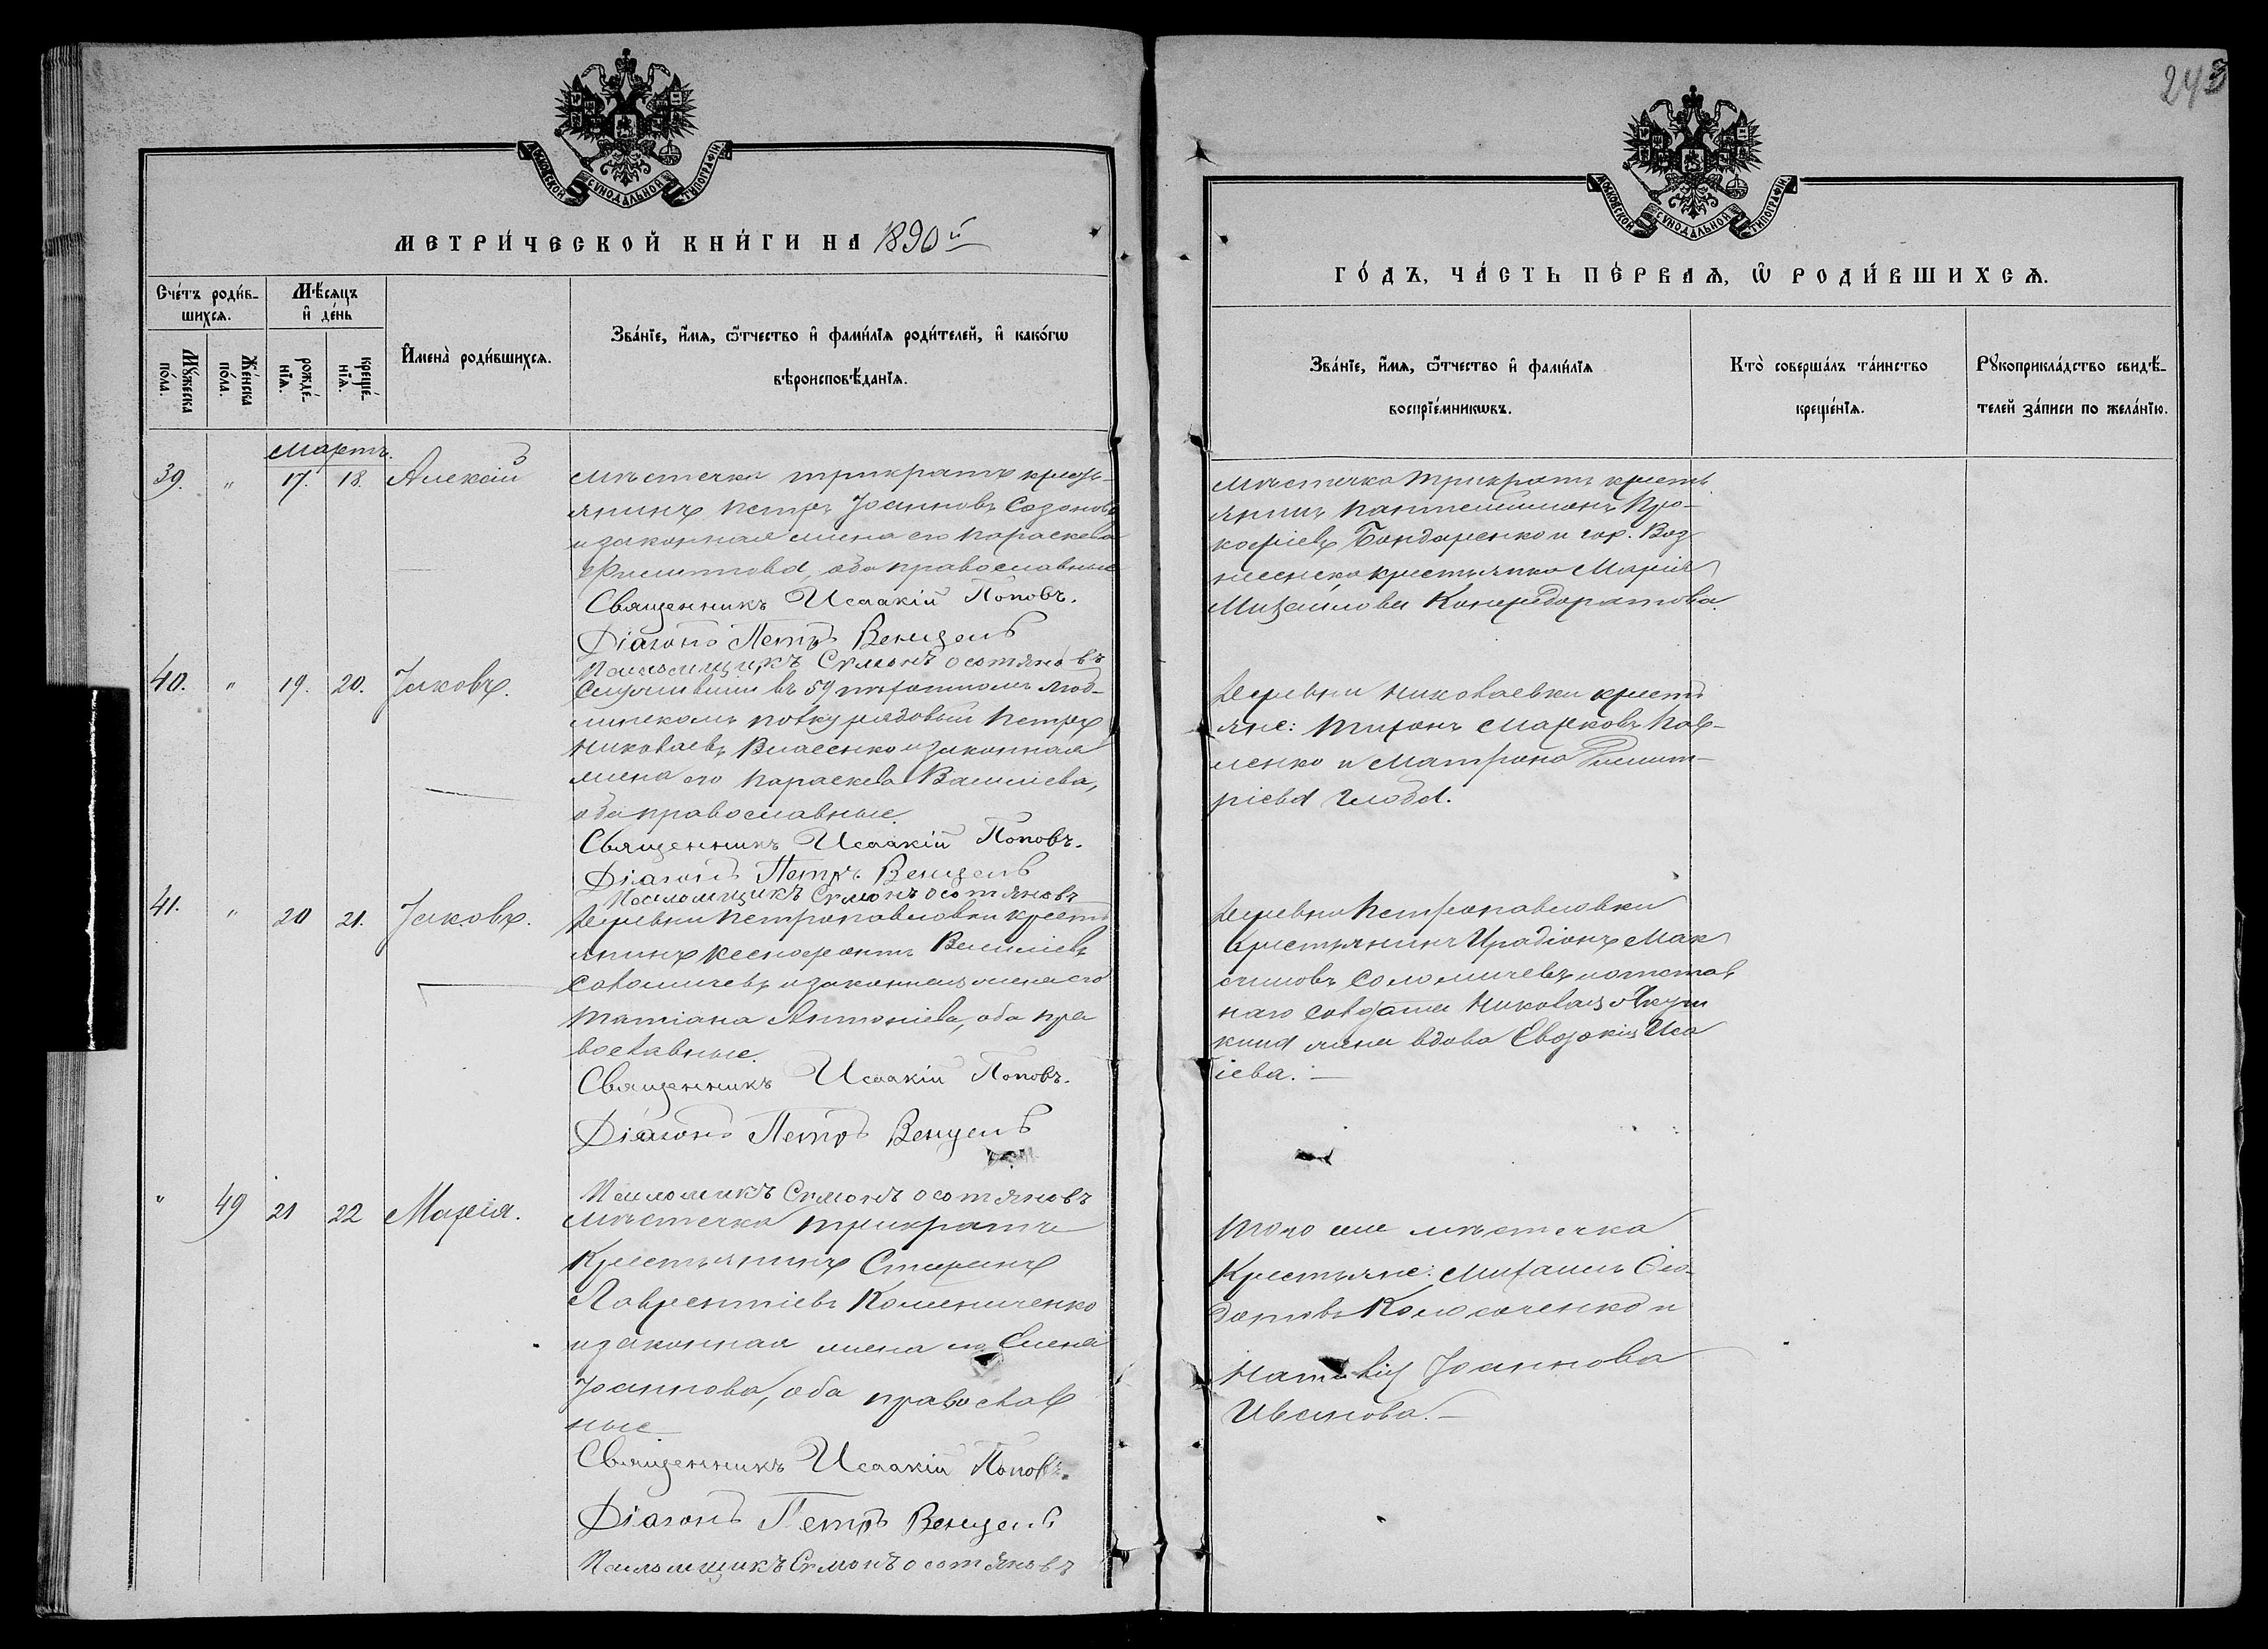 243
МОСКОВСКОЙ СУНОДАЛЬНОЙ ТИПОГРАФІИ
МЕТРИ́ЧЕСКОЙ КНИ́ГИ НА 1890й
Сче́тъ роди́в-
шихсѧ.
Мꙋ́жеска
по́ла.
Же́нска
по́ла.
Мѣ́сяцъ
и҆ де́нь
рожде́-
нїѧ.
креще́-
нїѧ.
И҆мена̀ роди́вшихсѧ.
Зва́нїе, и҆́мѧ, ѻ҆́тчество и҆ фамі́лїѧ роди́телей, и҆ како́гѡ
вѣроисповѣ́данїѧ.
Мартъ.
39. " 17. 18. Алексій
Мѣстечка Трикратъ кресть-
янинъ Петръ Іоанновъ Созоновъ
и законная жена его Параскева
Филиппова, оба православные
Священникъ Исаакій Поповъ.
Діаконъ Петръ Венцель
Псаломщикъ Симонъ
40. " 19. 20. Іаковъ.
Служившій въ 59 пѣхотномъ Люб-
линскомъ полку рядовый Петръ
Николаевъ Власенко и законная
жена его Параскева Васильева,
оба православные.
Священникъ Исаакій Поповъ.
Діаконъ Петръ Венцель
Псаломщикъ Симонъ
41. " 20 21. Іаковъ.
Деревни Петропавловки кресть
янинъ Ксенофонтъ Васильевъ
и законная жена его
Татіана Антоніева, оба пра
вославные.
Священникъ Исаакій Поповъ.
Діаконъ Петръ Венцель
Псаломщикъ Симонъ
" 49 21 22 Марія.
Мѣстечка Трикратъ
Крестьянинъ Стефанъ
Лаврентіевъ
и законная жена его Елена
Іоаннова, оба православ
ные
Священникъ Исаакій Поповъ.
Діаконъ Петръ Венцель
Псаломщикъ Симонъ
МОСКОВСКОЙ СУНОДАЛЬНОЙ ТИПОГРАФІИ
ГО́ДЪ, ЧА́СТЬ ПЕ́РВАѦ, Ѡ҆ РОДИ́ВШИХСѦ.
Зва́нїе, и҆́мѧ, ѻ҆́тчество и҆ фамі́лїѧ
воспрїе́мникѡвъ.
Кто̀ соверша́лъ та́инство
креще́нїѧ.
Рꙋкоприкла́дство свидѣ́-
телей за́писи по жела́нїю.
Мѣстечка Трикратъ кресть
янинъ Пантелеимонъ Про-
кофіевъ Бондаренко и гор. Воз
несенска крестьянка Марія
Михаилова
Деревни Николаевки кресть
яне: Тихонъ Марковъ Пав-
ленко и Матрона Димит-
ріева
Деревни Петропавловки
Крестьянинъ Иродіонъ Мак
симовъ и отстав
наго солдата Николая
жена вдова Евдокія Иса
іева.
Того же мѣстечка
Крестьяне: Михаилъ Ѳео-
дотовъ и
Наталія Іоаннова
Иванова.